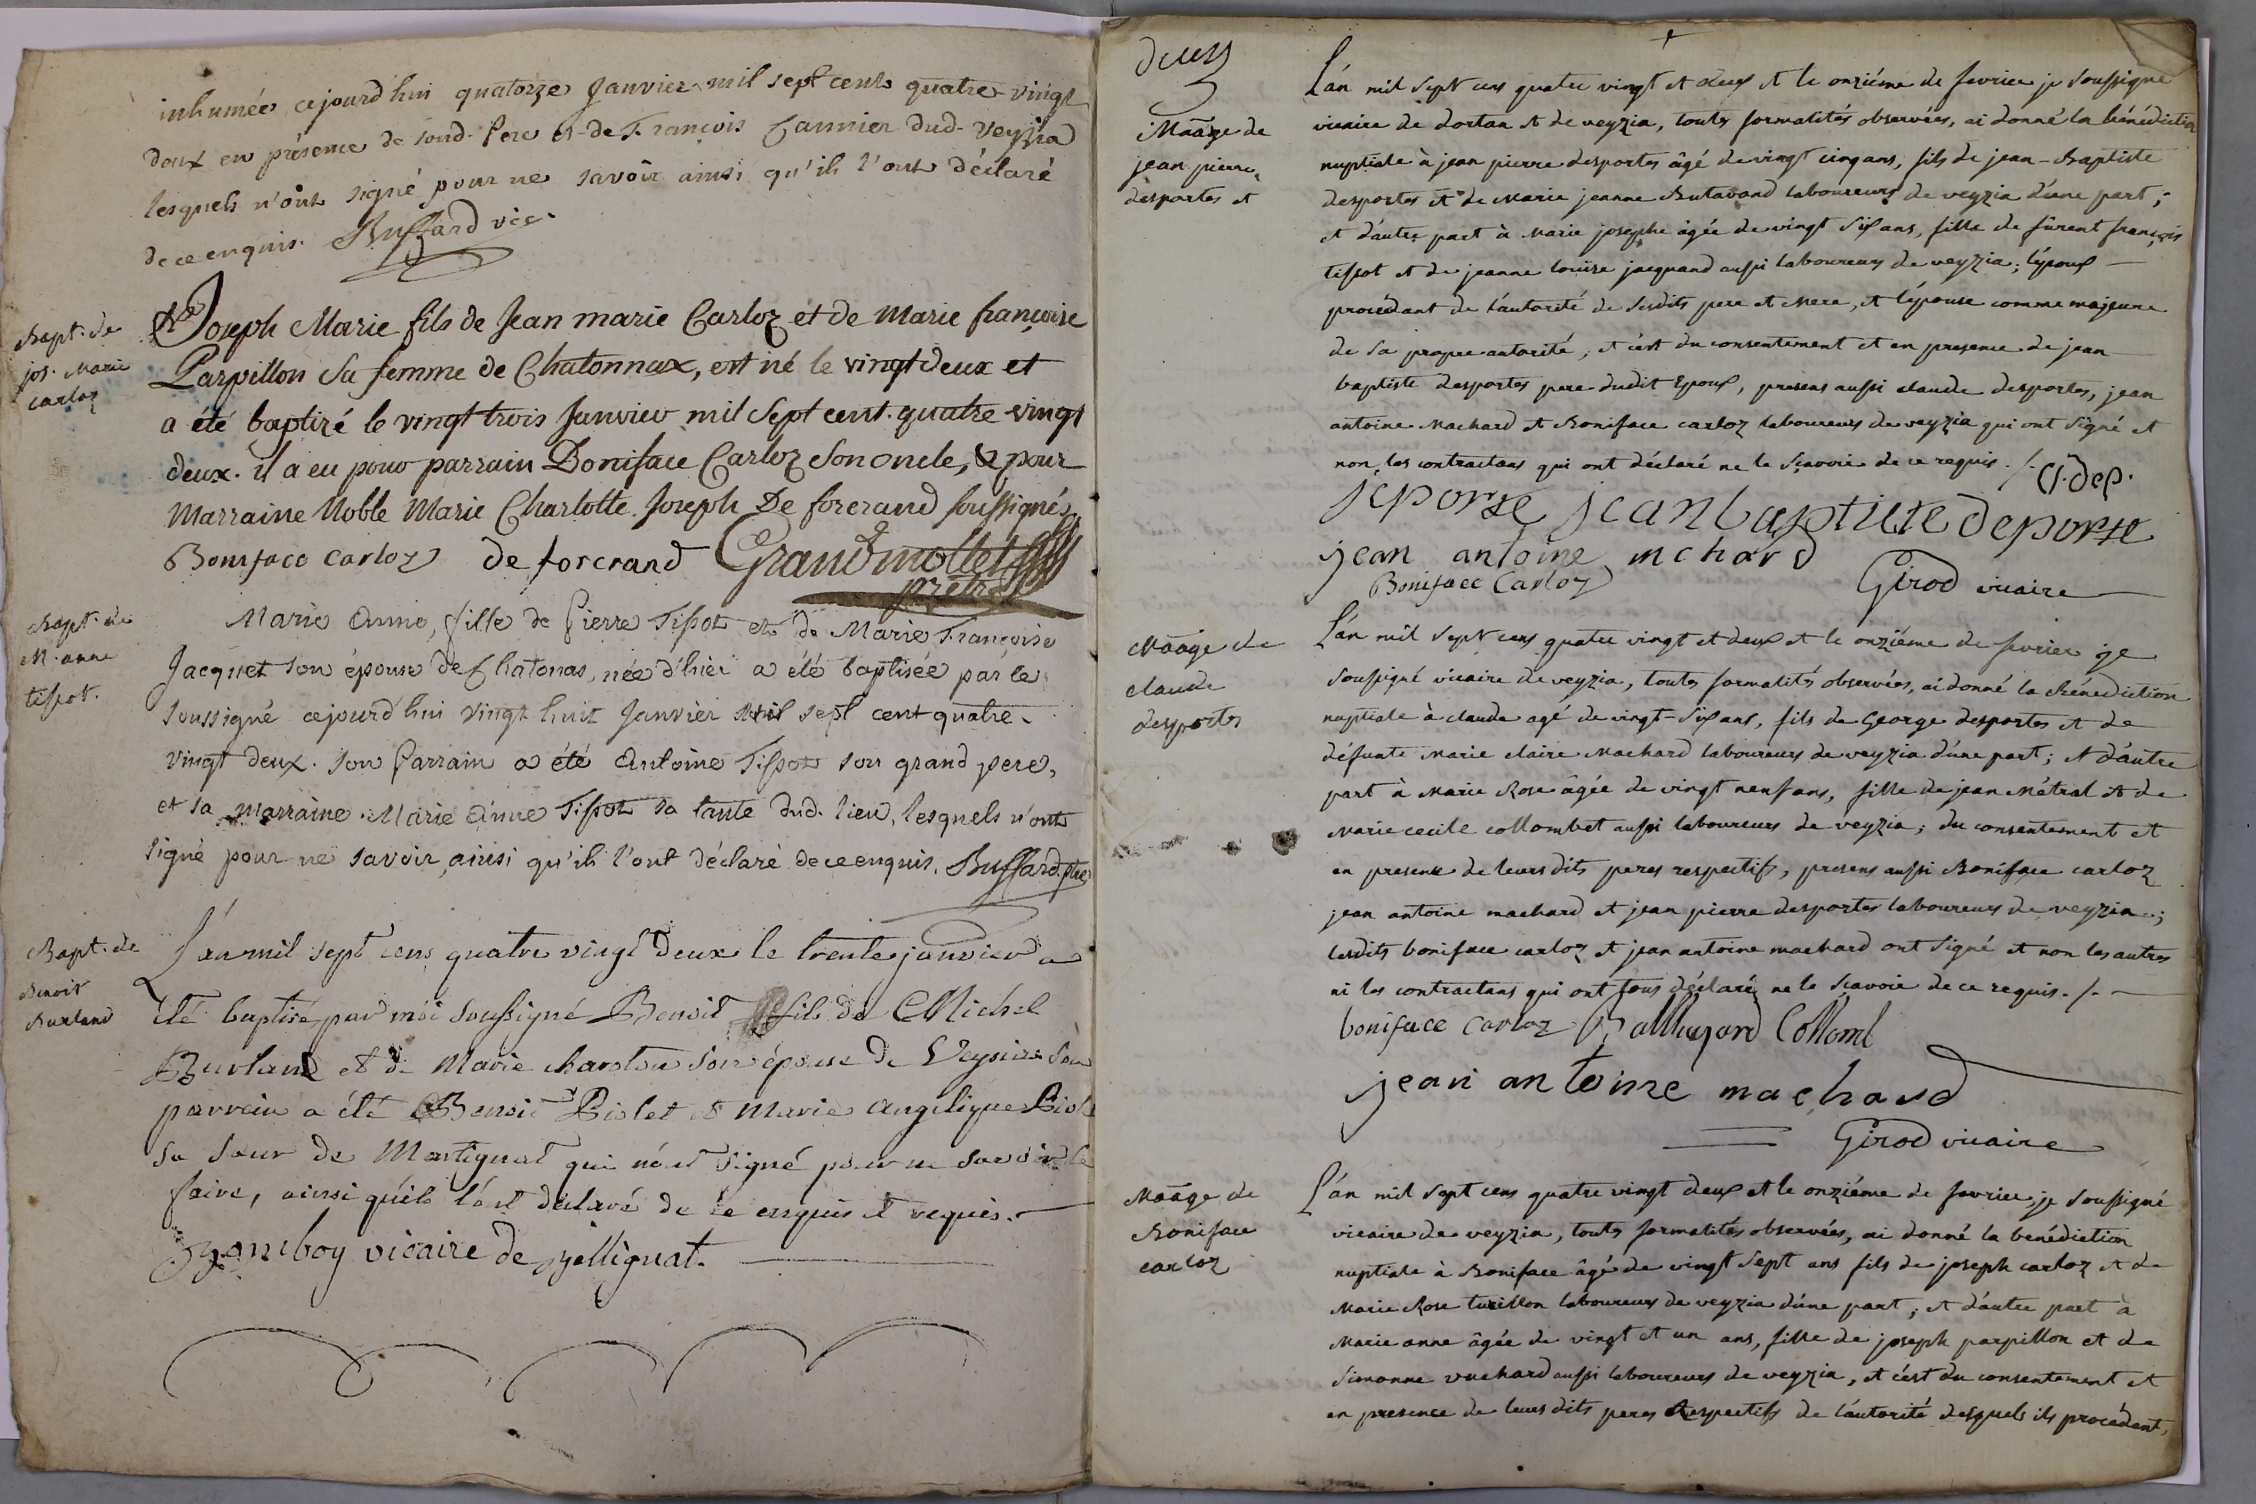 inhumée cejourd'hui quatorze Janvier mil sept cents quatre vingt
deux en présence de sond. Pere et de François Cannier dud. Veyzia
lesquels n'ont signé pour ne savoir ainsi qu'ils l'ont déclaré
de ce enquis. Buffard vic.
Bapt. de
jos. Marie
carloz
Joseph Marie fils de Jean marie Carloz et de Marie françoise
Parpillon Sa femme de Chatonnax, est né le vingt deux et
a été baptizé le vingt trois Janvier mil Sept cent quatre vingt
deux. il a eu pour parrain Boniface Carloz Son oncle, & pour
Marraine Noble Marie Charlotte Joseph De forcrand soussignés.
Boniface carloz de forcrand Grandmollet
prêtre
Bapt. de
M. anne
tissot.
Marie Anne, fille de Pierre Tissot et de Marie Françoise
Jacquet son épouse de Chatonas, née d'hier a été baptisée par le
soussigné cejourd'hui vingt huit Janvier mil sept cent quatre
vingt deux. son Parrain a été Antoine Tissot son grand pere,
et sa marraine Marie Anne Tissot sa tante dud. lieu, lesquels n'ont
signé pour ne savoir, ainsi qu'ils l'ont déclaré de ce enquis. Buffard ptre
Bapt. de
Benoit
Burland
L'an mil sept cens quatre vingt deux le trente janvier a
été baptisé par moi soussigné Benoit fils de Michel
Burland et de Marie son épouse de son
parrain a été Benoit Piolet et Marie Angelique
sa sœur de Martignat qui n'ont signé pour ne savoir le
faire, ainsi qu'ils l'ont déclaré de ce enquis et requis.
vicaire de
deux
Maage de
jean pierre
desportes et
L'an mil sept cens quatre vingt et deux et le onziéme de fevrier je soussigné
vicaire de dortan et de veyzia, touts formalités observées, ai donné la bénédiction
nuptiale à jean pierre desportes âgé de vingt cinq ans, fils de jean-Baptiste
desportes et de Marie jeanne Butavand laboureurs de veyzia d'une part;
et d'autre part à Marie josephe âgée de vingt six ans, fille de fûrent françois
tissot et de jeanne louise jacquand aussi laboureurs de veyzia; l'époux
procédant de l'autorité de susdits pere et Mere, et l'épouse comme majeure
de sa propre autorité, et c'est du consentement et en presence de jean
baptiste desportes pere dudit Epoux, presens aussi claude desportes, jean
antoine Machard et Boniface carloz laboureurs de veyzia qui ont signé et
non les contractans qui ont déclaré ne le sçavoir de ce requis. /. Cl. dep.
jean baptiste deporte
jean antoine mchard
Boniface Carloz Girod vicaire
Maage de
claude
desportes
L'an mil sept cens quatre vingt et deux et le onziéme de fevrier je
soussigné vicaire de veyzia, touts formalités observées, ai donné la Bénédiction
nuptiale à claude agé de vingt-six ans, fils de George desportes et de
défunte Marie claire Machard laboureurs de veyzia d'une part; et d'autre
part à Marie Rose âgée de vingt neuf ans, fille de jean Métral et de
Marie cecile collombet aussi laboureurs de veyzia; du consentement et
en presence de leurs dits peres respectifs, presens aussi Boniface carloz
jean antoine machard et jean pierre desportes laboureurs de veyzia;
lesdits boniface carloz et jean antoine machard ont signé et non les autres
ni les contractans qui ont tous déclaré ne le sçavoir de ce requis. /.
boniface carloz
jean antoine machard
Girod vicaire
Maage de
Boniface
carloz
L'an mil sept cens quatre vingt deux et le onziéme de fevrier, je soussigné
vicaire de veyzia, touts formalités observées, ai donné la bénédiction
nuptiale à Boniface âgé de vingt sept ans fils de joseph carloz et de
Marie Rose turillon laboureurs de veyzia d'une part; et d'autre part à
Marie anne âgée de vingt et un ans, fille de joseph parpillon et de
Simonne vuchard aussi laboureurs de veyzia, et c'est du consentement et
en presence de leurs dits peres Respectifs de l'autorité desquels ils procédent,